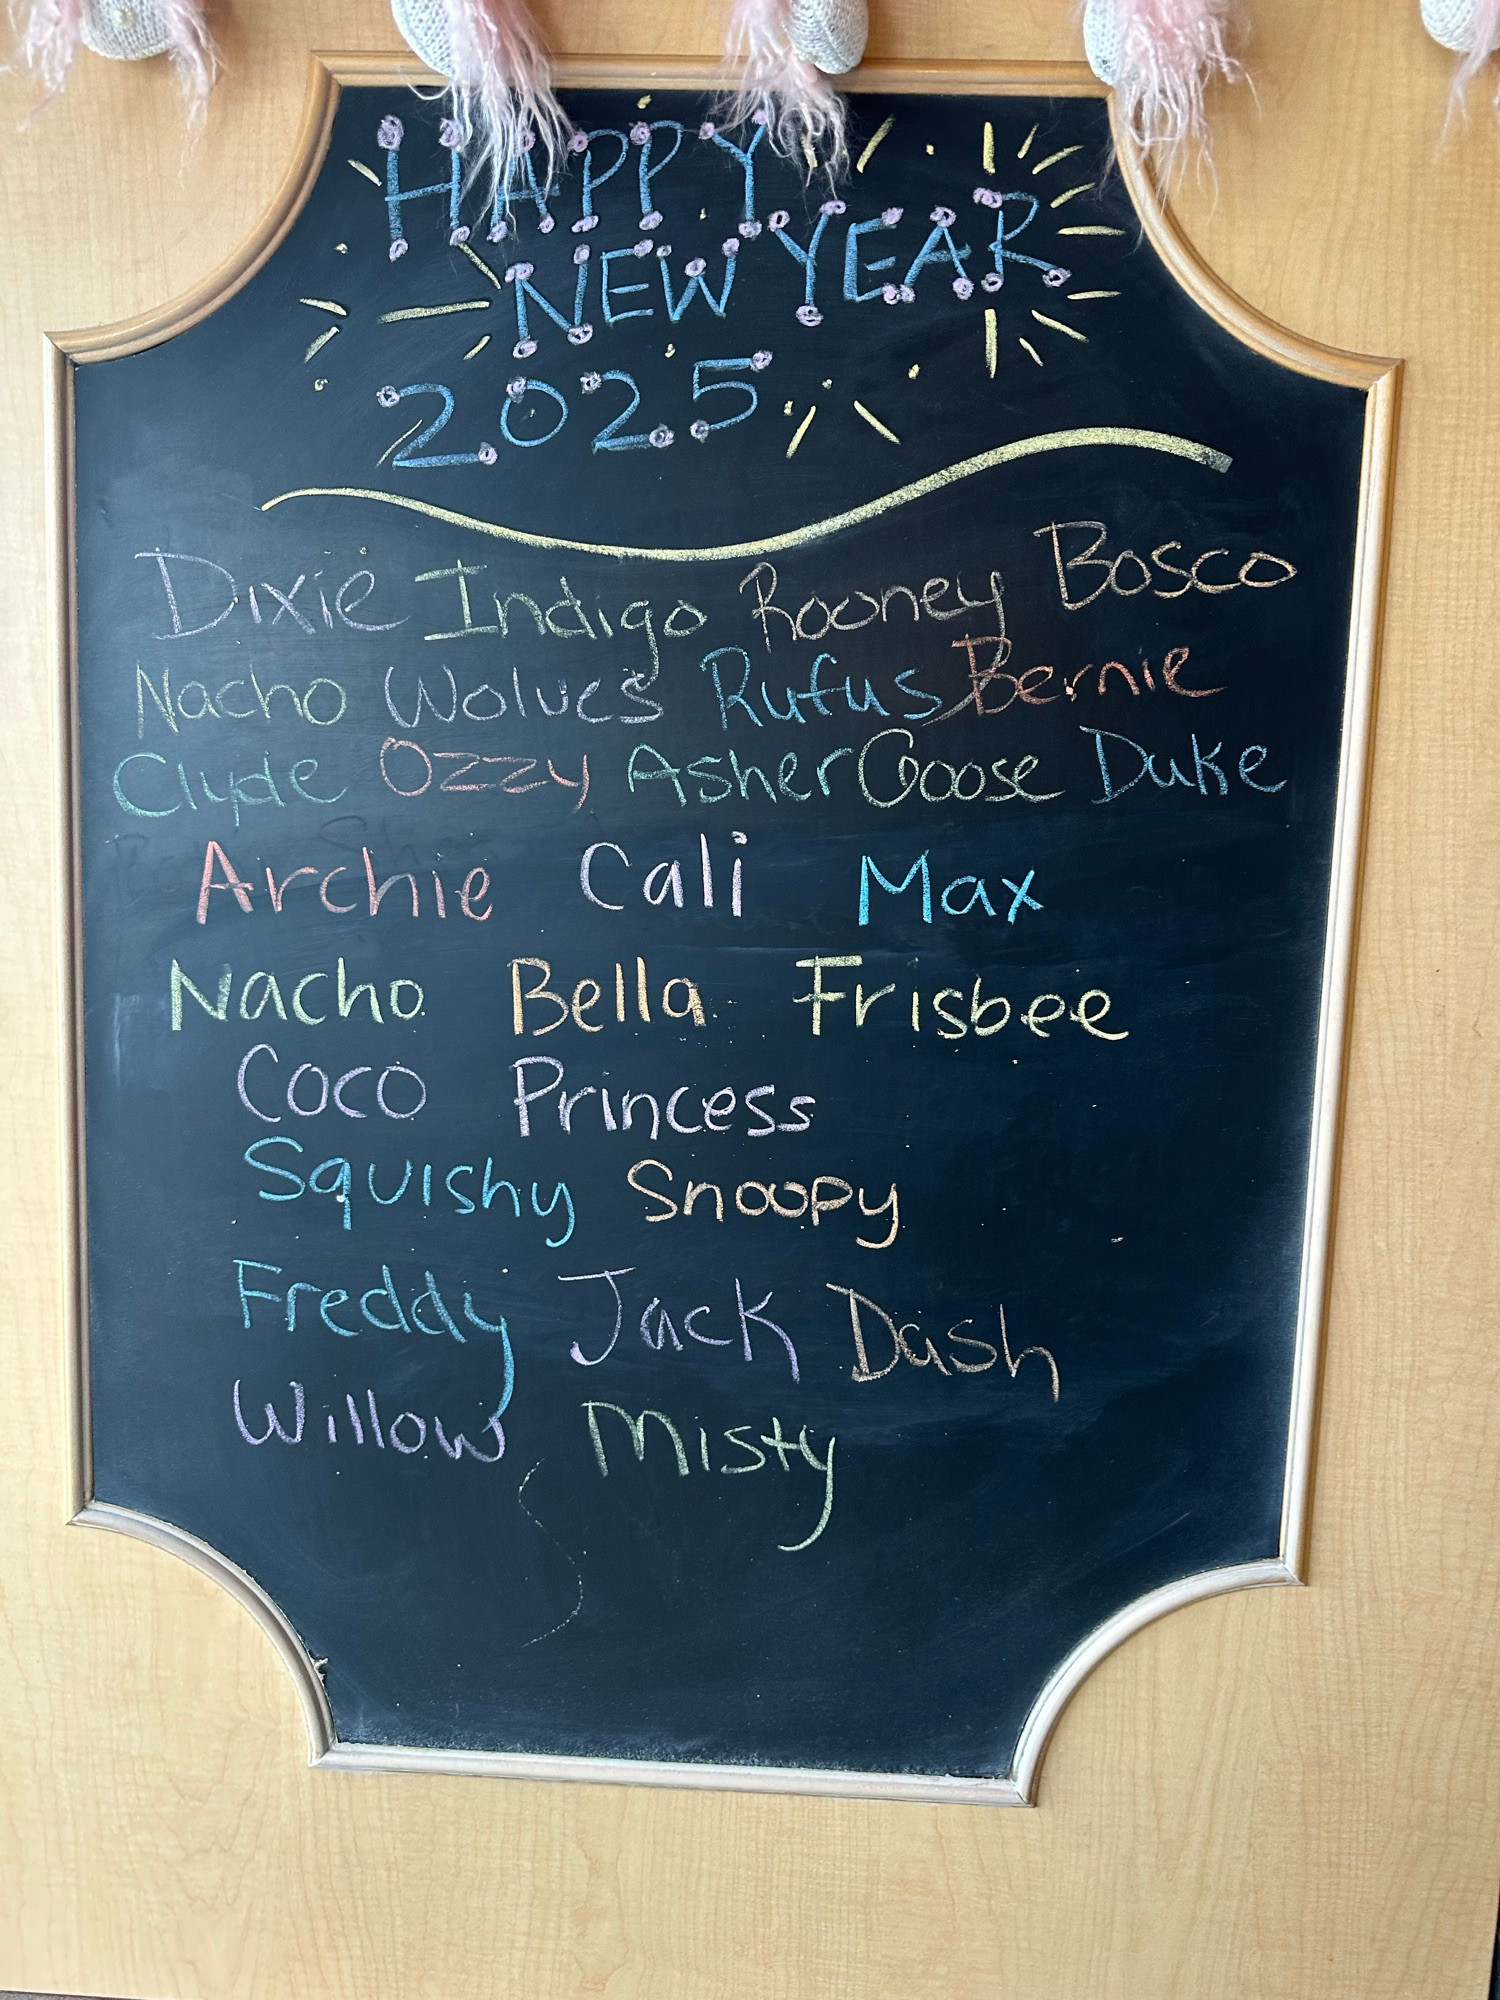 HAPPY
NEW YEAR
2025
Dixie Indigo Rooney Bosco
Nacho Wolves Rufus Bernie
Clyde Ozzy Asher Goose Duke
Archie Cali Max
Nacho Bella Frisbee
Coco Princess
Squishy Snoopy
Freddy Jack Dash
Willow Misty